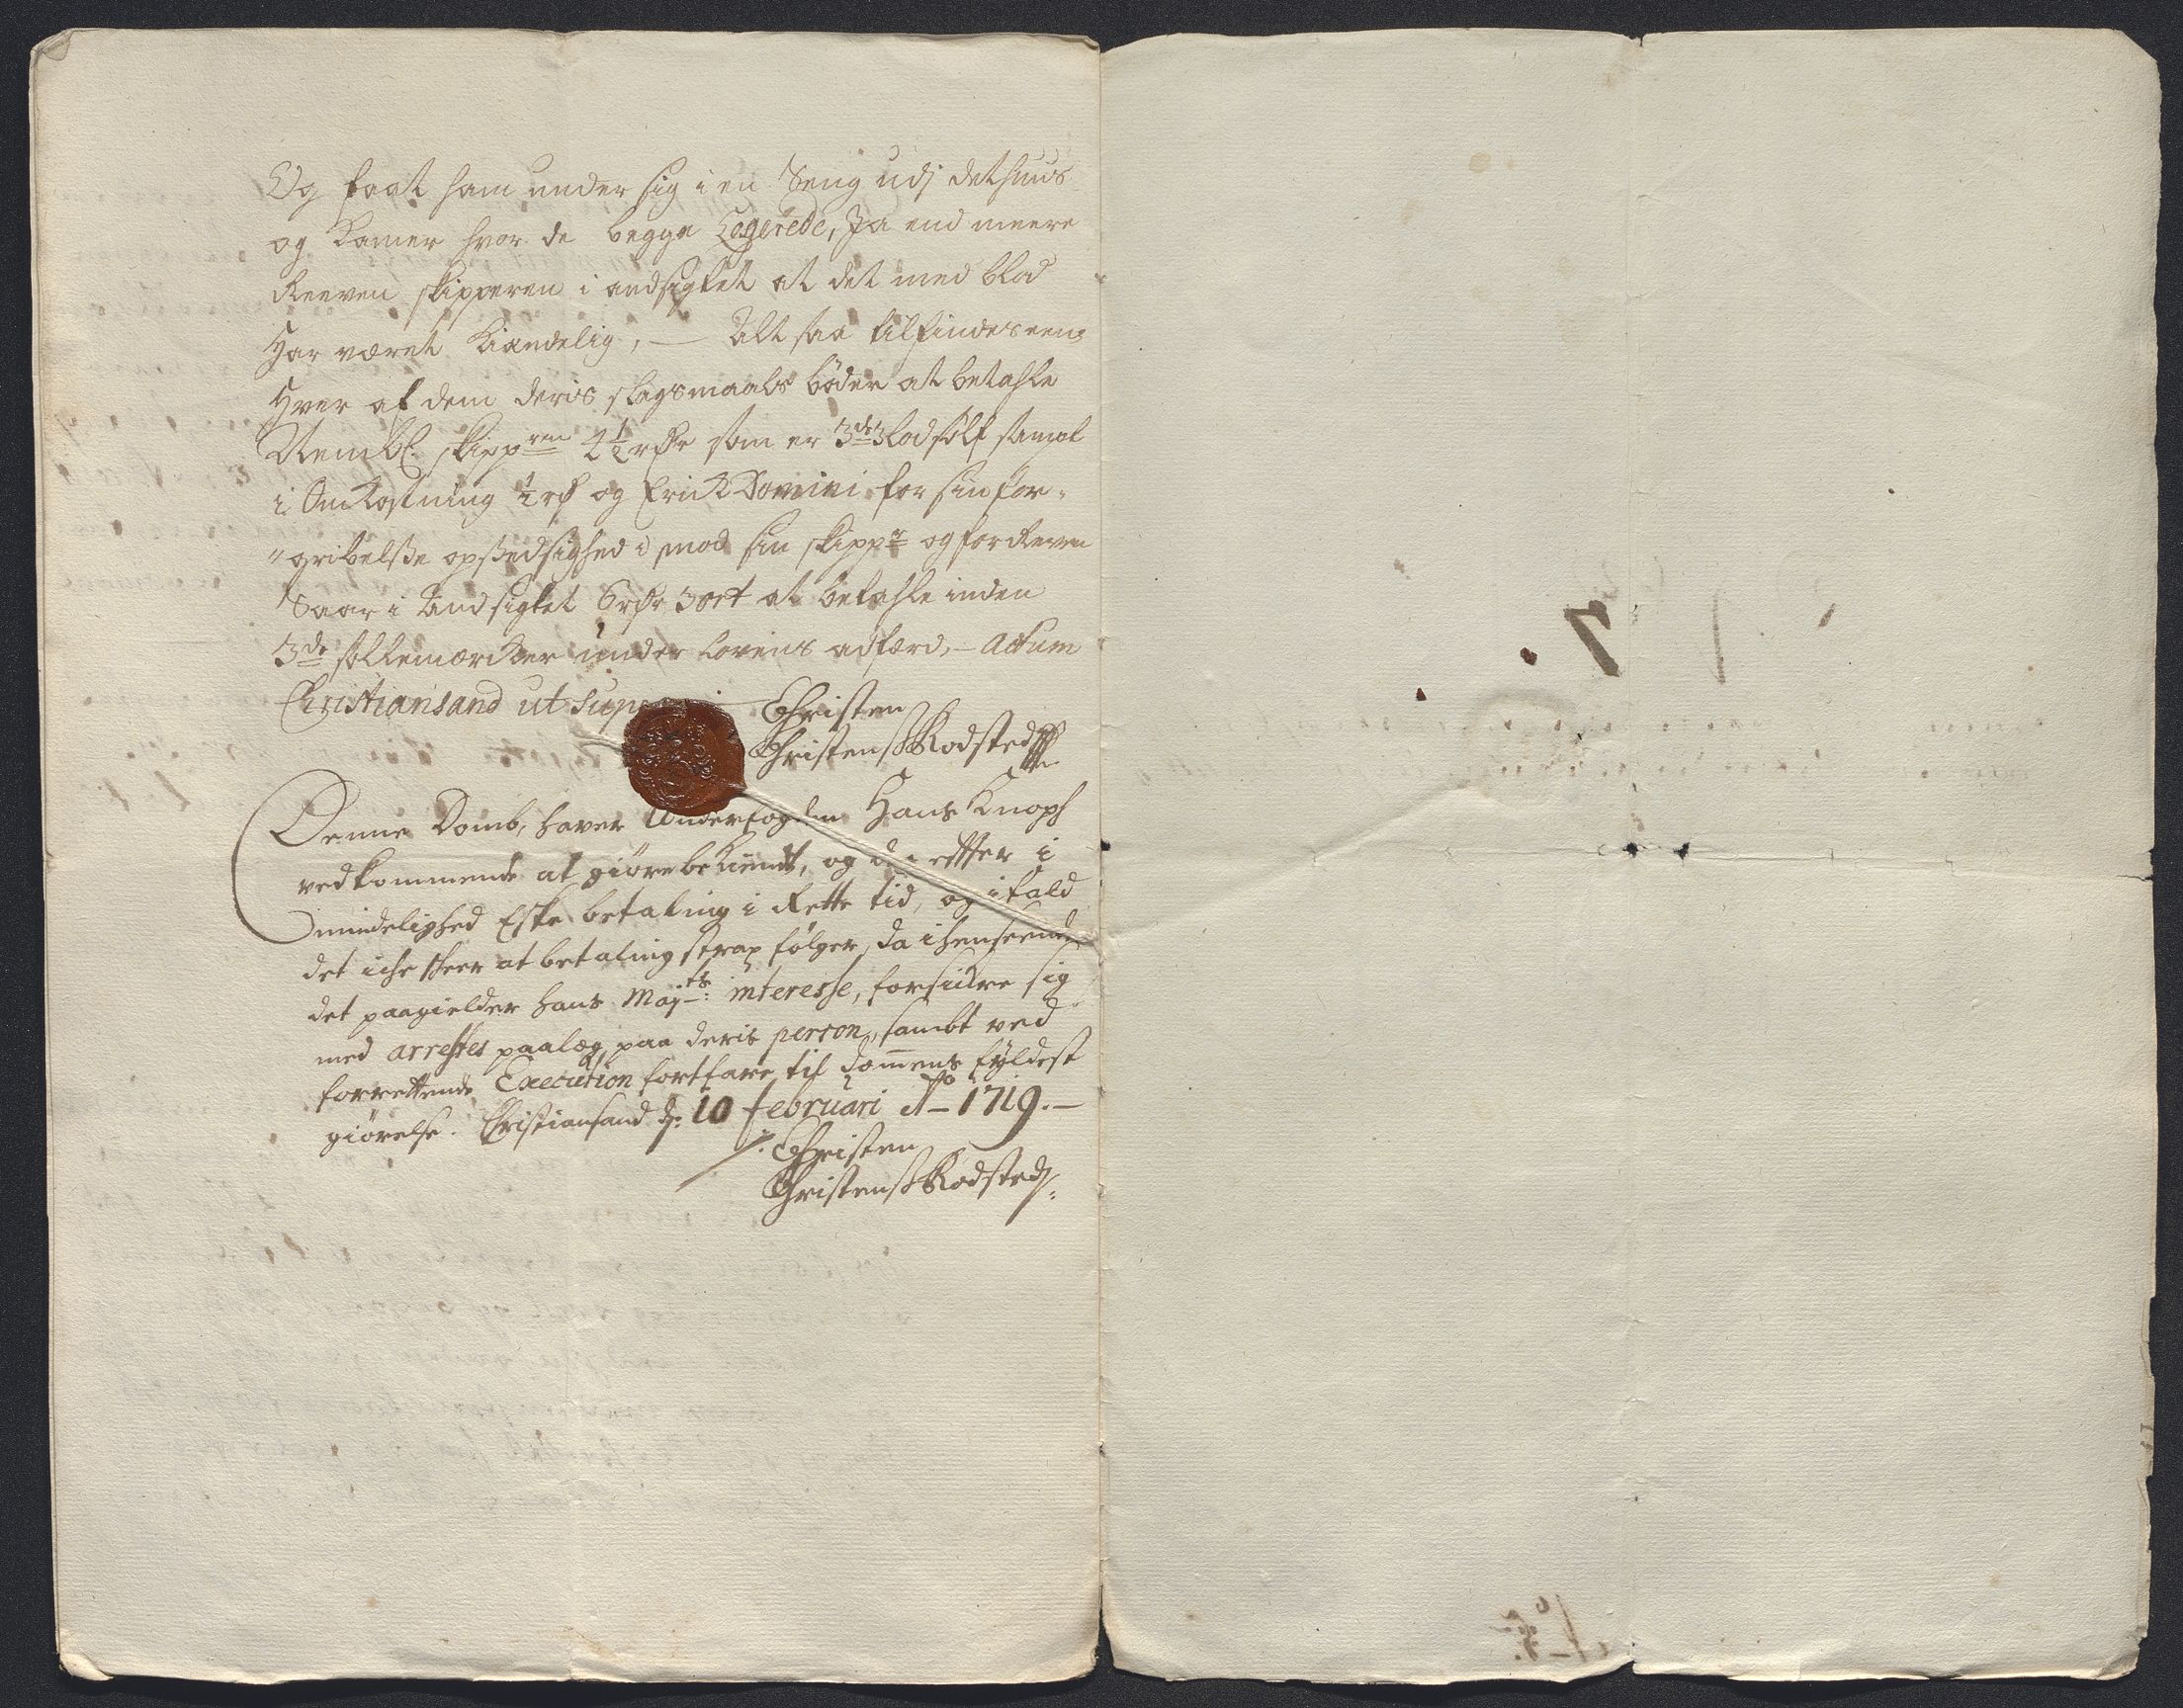 Og faat ham under sig i en Seng udj det huus
og Kamer hvor de begge Logerede, Ja end meere
Reeven skipperen i andsigtet at det med blod
Har været Kiændelig, — Alt saa tilfindes een
Hver af dem deris slagsmaals bøder at betahle
Neml: skippren 4½ rdr som er 3de 3 lod sølf sampt
i Omkostning ½ rd og Erick Domini for sin for-
"gribelsse opsedsighed imod sin skippr og for Reven
Saar i Andsigtet 6 rdr 3 ort at betahle inden
3de sollemercker under lovens adfærd, - Actum
Christiansand ut supra
Christen
Christenss Rodsted
Denne Domb, haver Underfogden Hans Knoph
vedkommende at giøre bekiendt, og der effter i
mindelighed Eske betaling i Rette tid, og i fald
det iche skeer at betaling strax følger, da i henseende
det paagielder hans Majts: interesse, forsickre sig
med arrestes paalæg paa deris person, sambt ved
forrettende Execution fortfare til dommens fyldest
giørelse. Christiansand d: 10 februari Ao 1719. —
Christen
Christenss Rodsted